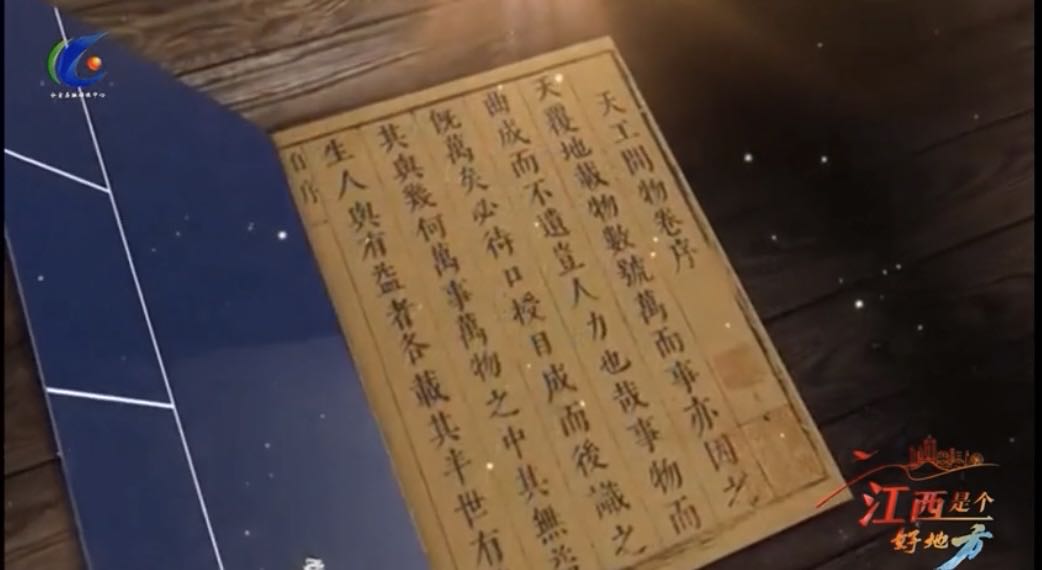 天工開物卷序
天覆地載物數號萬而事亦因之
曲成而不遺豈人力也哉事物而
既萬矣必待口授目成而後識之
其與幾何萬事萬物之中其無益
生人與有益者各載其半世有
自序
江西是个
好地方